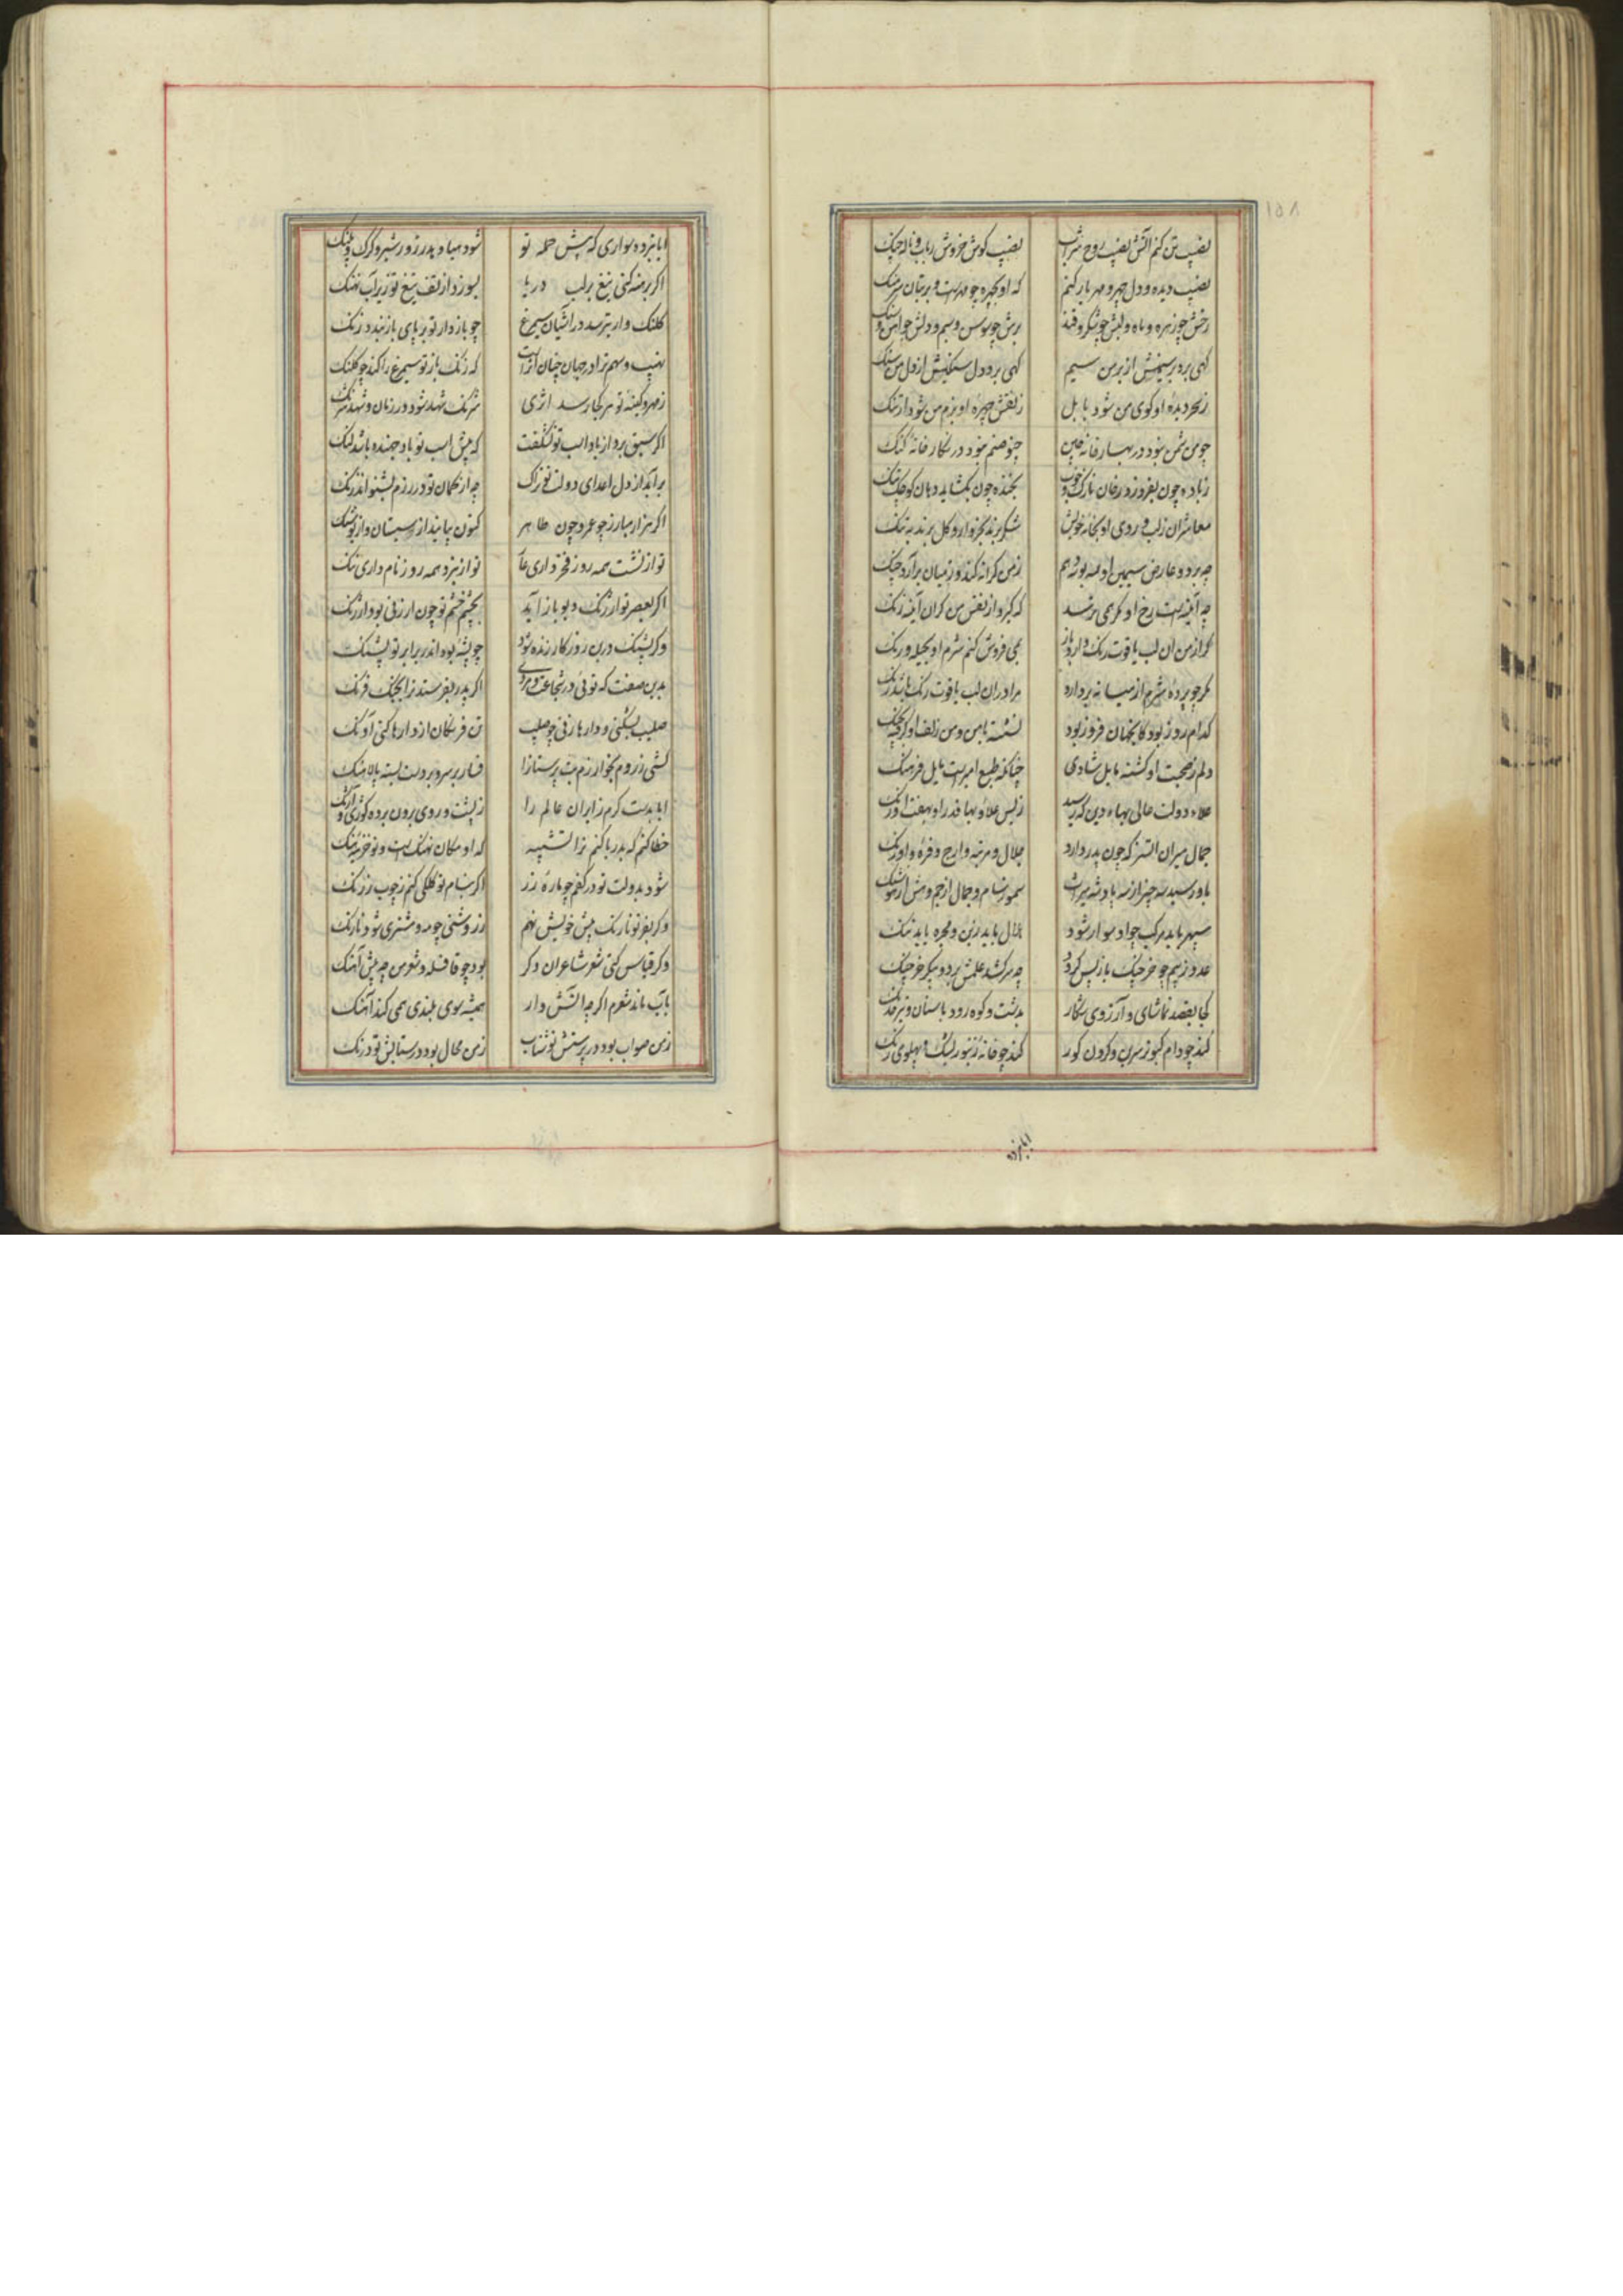 ۱۵۸
نصیب تن کنم آتش نصیب روح شراب نصیب کوش خروش رباب و ناله چنک
نصیب دیده و دل چهر و مهر یار کنم که او بچهره چو مهرست و بر بتان سرهنک
رخش چو زهره و ماه و لبش چو شکر و قند برش چو سوسن و سیم و دلش چو آهن و سنک
کهی برد بر سیمینش از بر من سیم کهی برد دل سنکینش از دل من سنک
ز سحر دیده او کوی من شود بابل ز نقش چهره او بزم من شود ارتنک
چو من شمن نبود در بهار خانه چین چنو صنم نبود در نکارخانه کنک
ز باده چون بفروزد رخان نازک و خوب بخنده چون بکشاید دهان کوچک و تنک
معاشران ز لب و روی او بخانه خویش شکر برند بخروار و کل برند به تنک
چه بر دو عارض سیمین او نسه بوسه دهم ز من کرانه کند وز میان برآرد جنک
چه آینه است رخ او مکر همی ترسد که کیرد از نفس من کران آینه زنک
کر از من آن لب یاقوت رنک دارد باز همی فروش کنم شرم او بحیله و رنک
مکر چو پرده شرم از میانه بردارد مرا در آن لب یاقوت رنک باشد رنک
کدام روز بود کانچنان فروز بود نشسته با من و من زلف او کرفته بچنک
دلم ز صحبت او کشته مایل شادی چنانکه طبع امیرست مایل فرهنک
علاء دولت عالی بهاء دین که رسید ز بس علاء و بها قدر او بهفت اورنک
جمال میران اتسز که چون پدر دارد جلال و مرتبه و ارج و فره و اورنک
باو رسید سه چیز از سه پادشه میراث سمور سام و جمال از جم و هش از هوشنک
سپهر باید مرکب چو او سوار شود هلال باید زین و مجره باید تنک
عدو ز بیم چو خرچنک باز پس کردد چه سر کشد علمش بر دو پیکر خرچنک
کجا بقصد تماشای و آرزوی شکار بدشت و کوه رود با سنان و تیر خدنک
کند چو دام کبوتر سرین و کردن کور کند چو خانه زنبور پشت و پهلوی رنک
ایا نبرده سواری که پیش حمله تو شود هبا و هدر زور شیر و کرک و پلنک
اکر برهنه کنی تیغ بر لب دریا بسوزد از تف تیغ تو زیر آب نهنک
کلنک وار بترسد در آشیان سیمرغ چو بازدار تو بر پای باز بندد زنک
نهیب و سهم ترا در جهان چنان اثرست که زنک باز تو سیمرغ را کند چو کلنک
ز مهر و کینه تو هر کجا رسد اثری شرنک شهد شود در زمان و شهد شرنک
اکر سبق برد از باد اسب تو نه شکفت که پیش اسب تو باد جهنده باشد لنک
برآید از دل اعدای دولت تو ترنک چه از کمان تو در رزم بشنوند ترنک
اکر هزار مبارز چو عمرو چون طاهر کنون بیایند از سیستان و از پوشنک
تو از نشست همه روز فخر داری عار تو از نبرد همه روز نام داری ننک
اکر بعصر تو ارژنک دیو باز آید بچشم خشم تو چون ارزنی بود ارژنک
وکر پشنک درین روزکار زنده شود چو پشه بود اندر برابر تو پشنک
بدین صفت که توئی در شجاعت و مردی اکر پدر بفرستد ترا بجنک فرنک
صلیب بشکنی و دارها زنی چو صلیب تن فرنکان از دارها کنی آونک
کشی ز روم بخوارزم بت پرستانرا فسار بر سر و بر دست بسته پالاهنک
ایا بدست کرم ز ایران عالم را ز پشت و روی برون برده کوژی و آژنک
خطا کنم که بدریا کنم ترا تشبیه که او مکان نهنک است و تو خزینه هنک
اکر بنام تو کلکی کنم ز چوب زرنک شود بدولت تو در کفم چو پاره زر
وکر بفر تو نارنک پیش خویش نهم ز روشنی چو مه و مشتری شود نارنک
وکر قیاس کنی شعر شاعران دکر بود چو قافله و شعر من چه پیش آهنک
بآب ماند شعرم اکر چه آتش وار همیشه سوی بلندی همی کند آهنک
ز من صواب بود در پرستش تو شتاب ز من محال بود در ستایش تو درنک